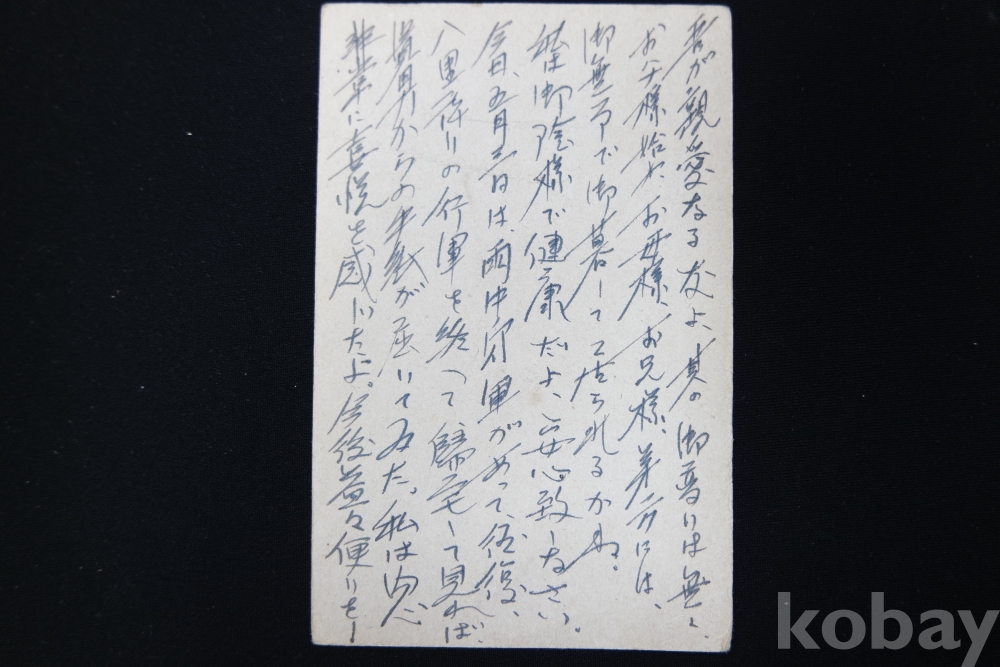 吾が親愛なる友よ、其の御変りは無く、
お父様始めお母様、お兄様、弟方には、
御無事で御暮して居られるかね。
私は御陰様で健康だよ、安心致しなさい。
今日、五月三日は、雨中行軍があつて、往復、
八里余りの行軍を終へて帰宅して見れば、
からの手紙が届いてゐた。私は内心
非常に喜悦を感じたよ。今後益々便りをし
kobay